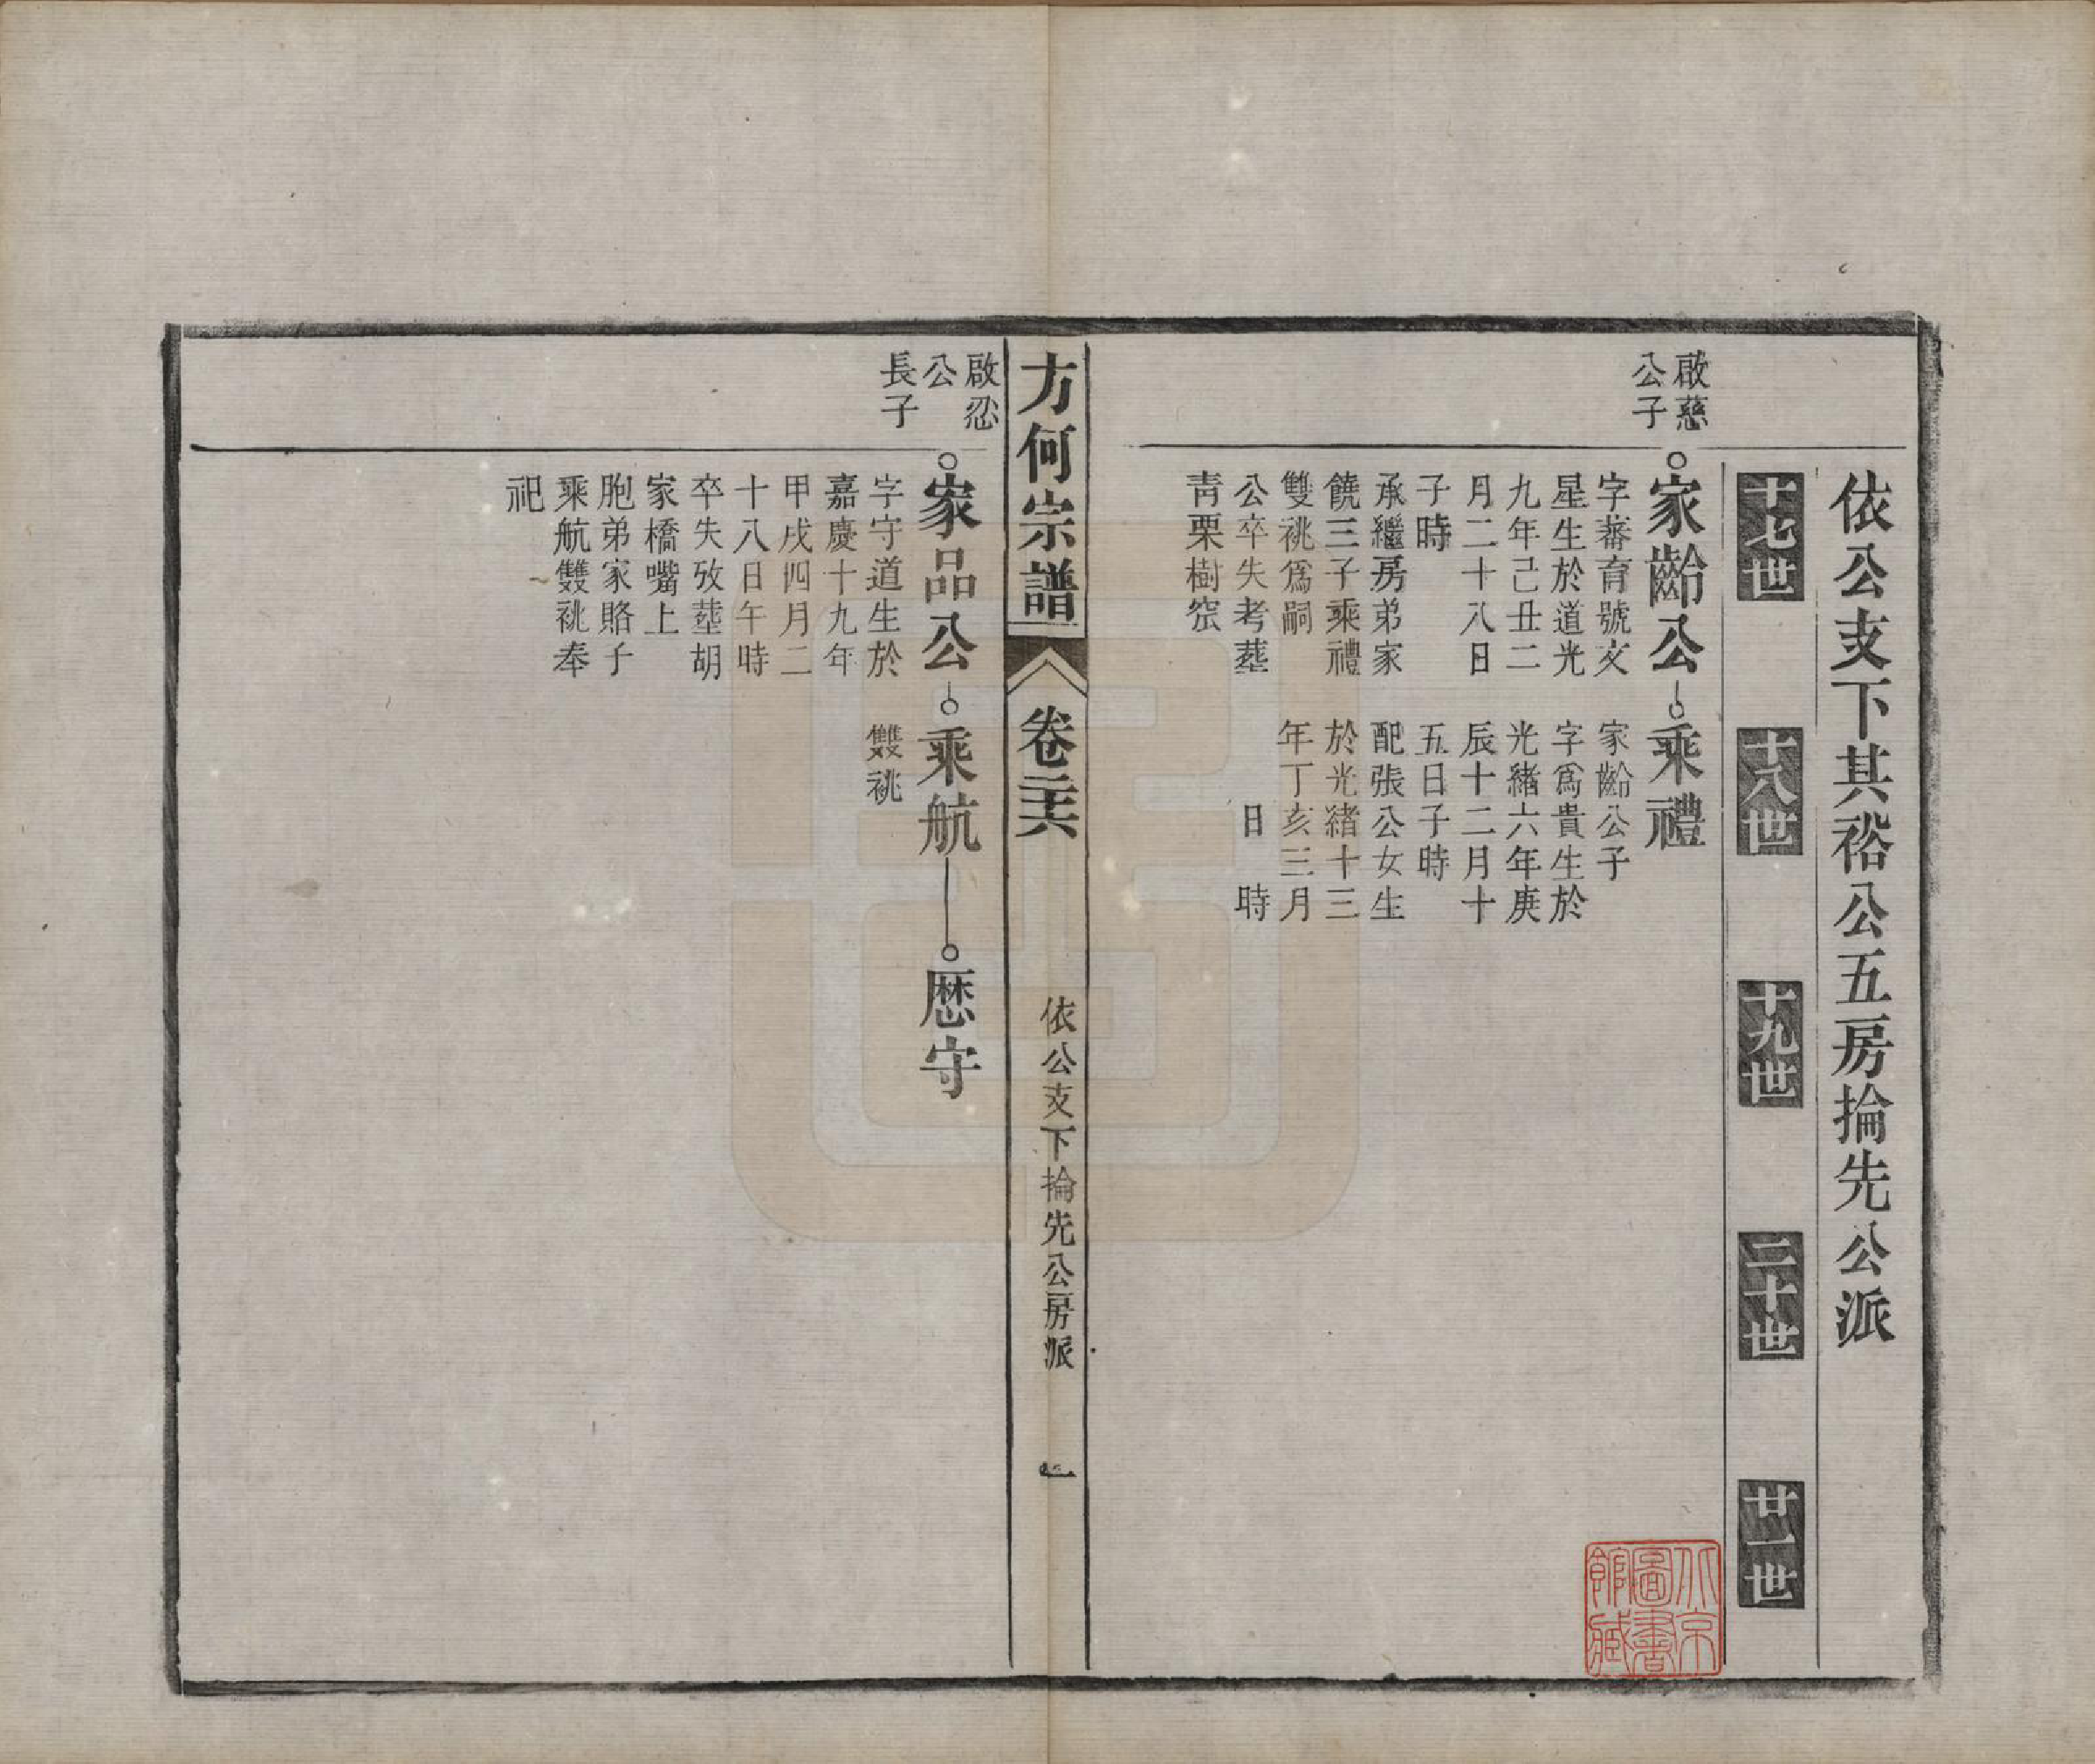 依公支下其裕公五房掄先公派
十七世
十八世
十九世
二十世
廿一世
啟慈
公子
家齡公
字蕃育號文
星生於道光
九年己丑二
月二十八日
子時
承繼房弟家
饒三子乘禮
雙祧爲嗣
公卒失考塟
靑栗樹窊
乘禮
家齡公子
字爲貴生於
光緒六年庚
辰十二月十
五日子時
配張公女生
於光緒十三
年丁亥三月
日 時
方何宗譜
卷二六
依公支下掄先公房派
一
啟忍
公
長子
家品公
字守道生於
嘉慶十九年
甲戌四月二
十八日午時
卒失攷塟胡
家橋嘴上
胞弟家賂子
乘航雙祧奉
祀
乘航
雙祧
歷守
北京
圖書
館藏